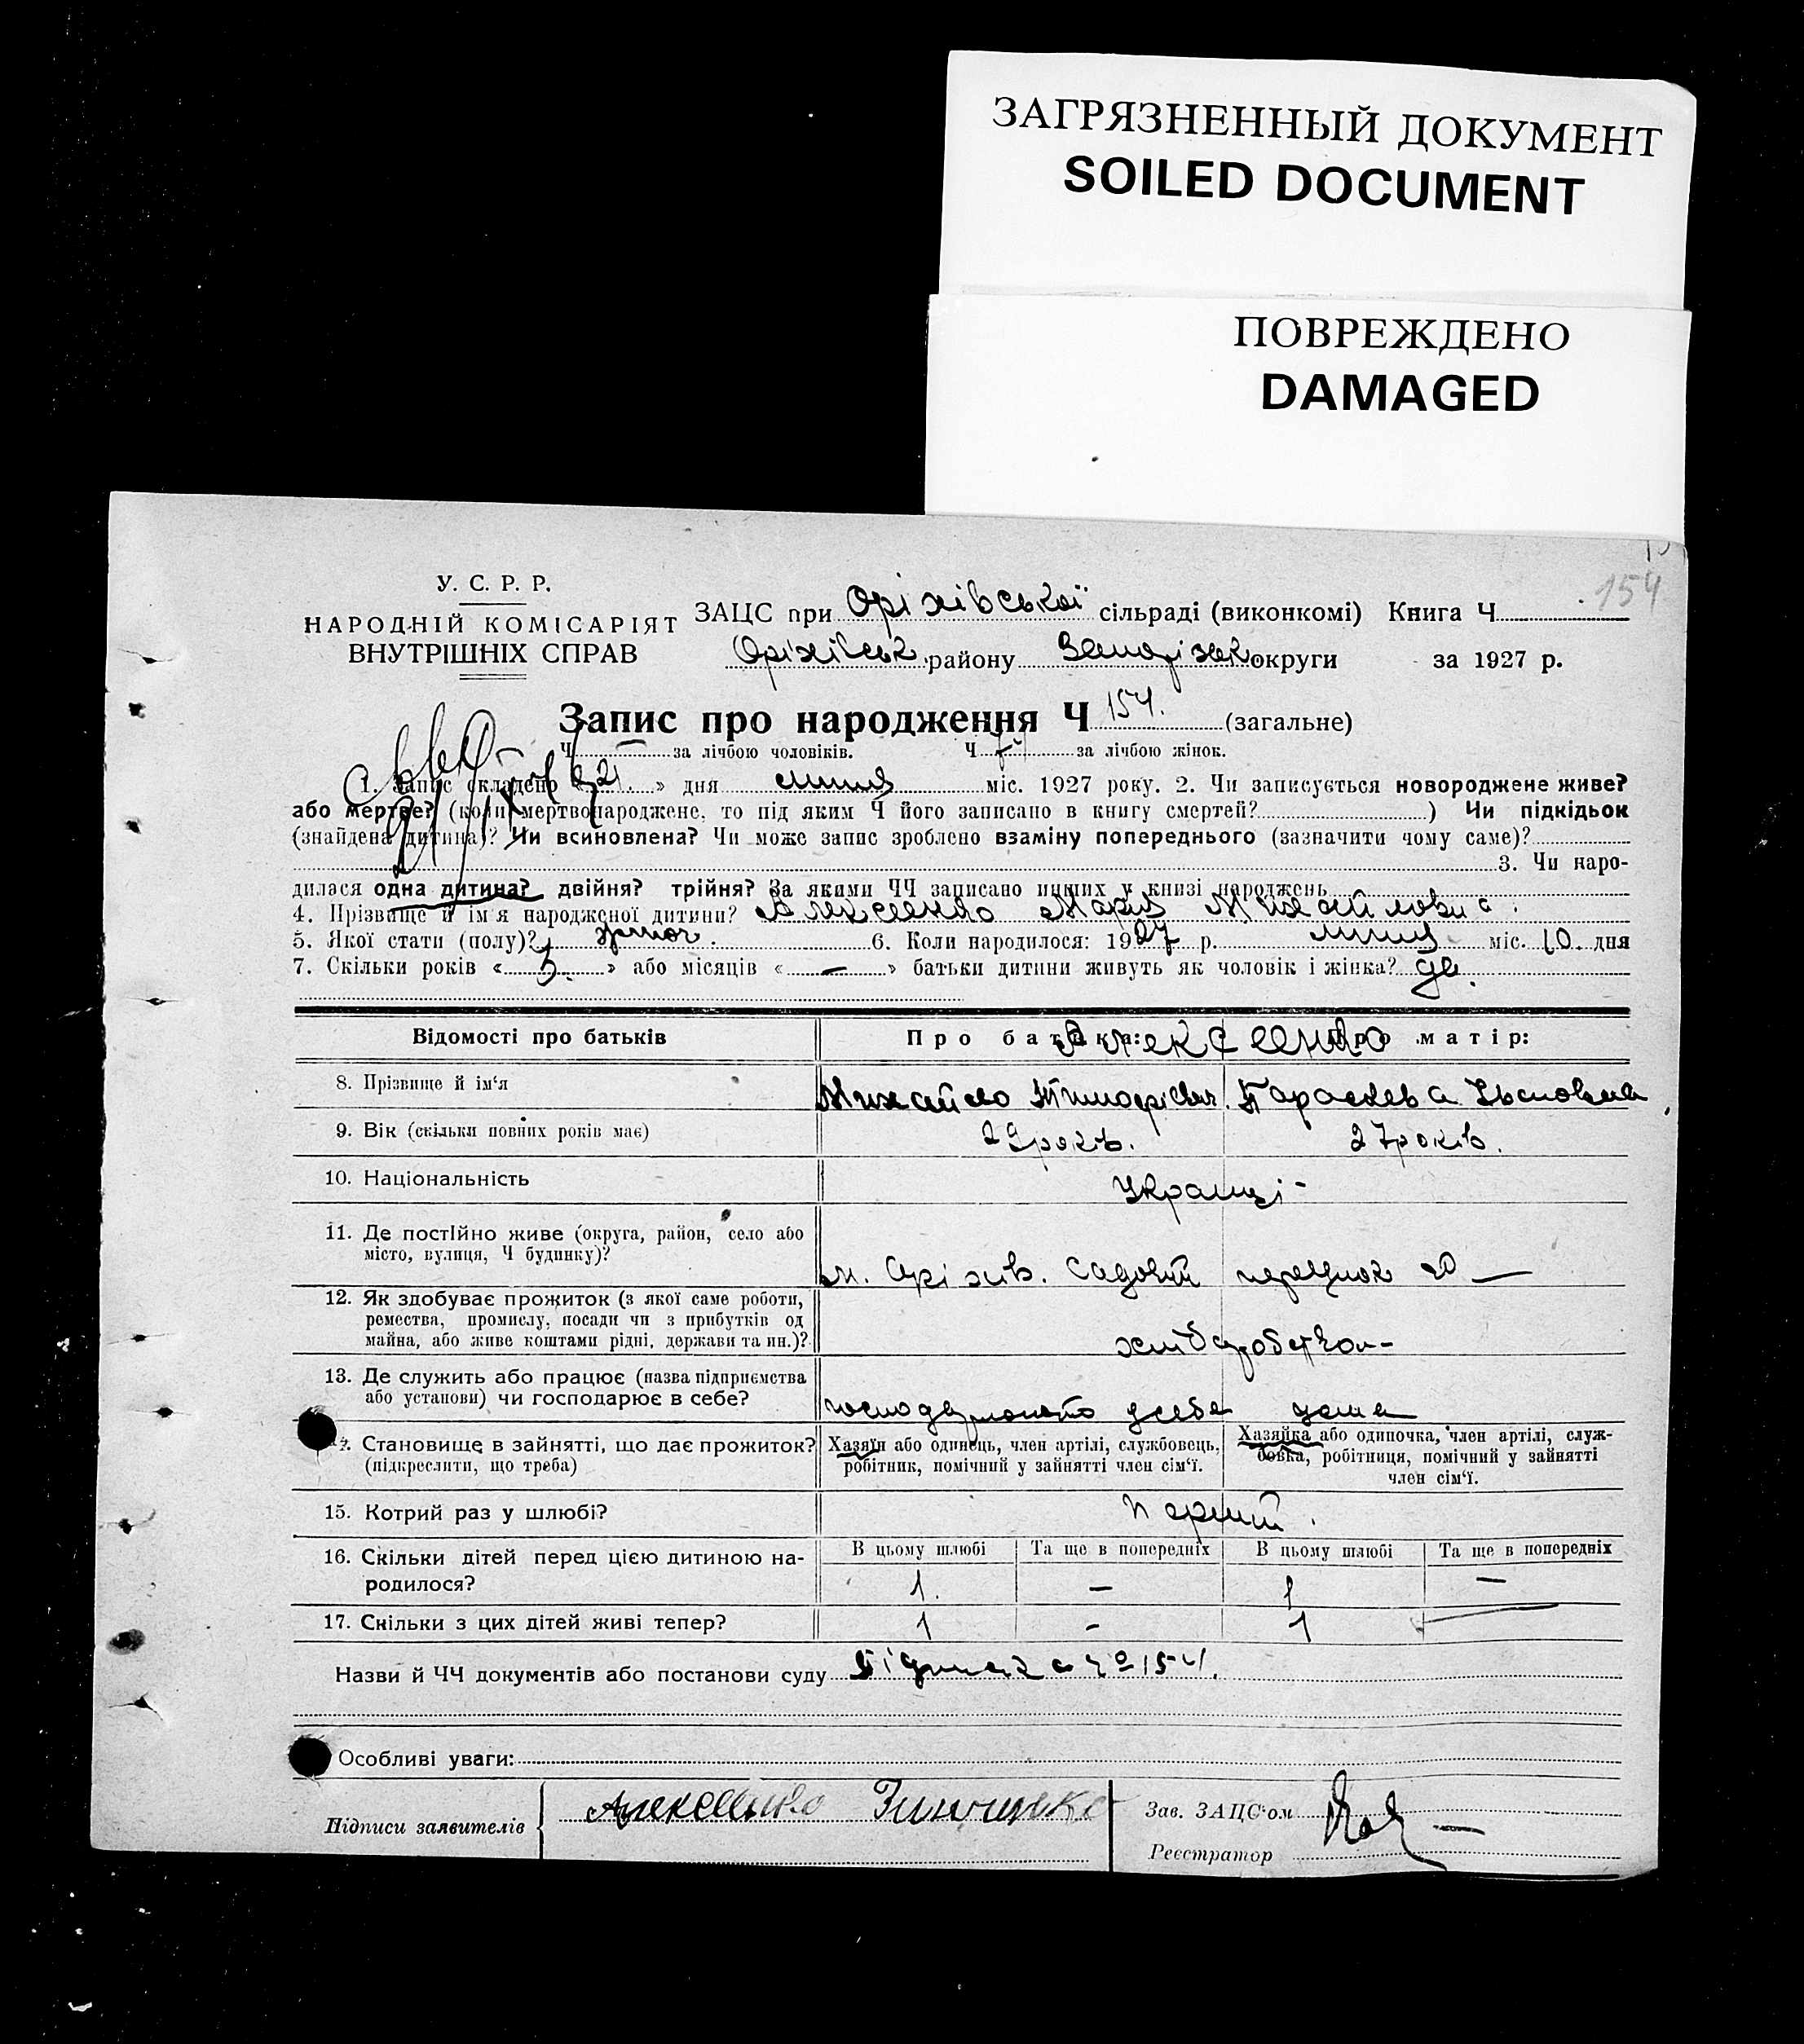 ЗАГРЯЗНЕННЫЙ ДОКУМЕНТ
SOILED DOCUMENT
ПОВРЕЖДЕНО
DAMAGED
154
У. С. Р. Р.
НАРОДНІЙ КОМІСАРІЯТ
ВНУТРІШНІХ СПРАВ
ЗАЦС при Оріхівської сільраді (виконкомі) Книга Ч
Оріхівськ району Запорізьк округи за 1927 р.
Запис про народження Ч 154. (загальне)
Ч — за лічбою чоловіків. Ч за лічбою жінок.
1. Запис складено « 21 » дня липня міс. 1927 року. 2. Чи записується новороджене живе?
або мертве? (коли мертвонароджене, то під яким Ч його записано в книгу смертей? ) Чи підкідьок
(знайдена дитина)? Чи всиновлена? Чи може запис зроблено взаміну попереднього (зазначити чому саме)?
3. Чи наро-
дилася одна дитина? двійня? трійня? За якими ЧЧ записано инших у книзі народжень
4. Прізвище й ім'я народженої дитини? Алексеенко Мария Михайловна.
5. Якої стати (полу)? жіноч. 6. Коли народилося: 1927 р. липня міс. 10. дня
7. Скільки років « 3. » або місяців « — » батьки дитини живуть як чоловік і жінка? да.
Відомості про батьків Про батька: Про матір:
Алексеенко
8. Прізвище й ім'я Михайло Тимофієвич. Параскева
9. Вік (скільки повних років має) 29 років. 27 років.
10. Національність Українці -
11. Де постійно живе (округа, район, село або
місто, вулиця, Ч будинку)? м. Оріхів. Садовий переулок —
12. Як здобуває прожиток (з якої саме роботи,
ремества, промислу, посади чи з прибутків од
майна, або живе коштами рідні, держави та ин.)?
хлібаробством -
13. Де служить або працює (назва підприємства
або установи) чи господарює в себе? господарюють у себе дома
14. Становище в зайнятті, що дає прожиток?
(підкреслити, що треба)
Хазяїн або одинець, член артілі, службовець,
робітник, помічний у зайнятті член сім'ї.
Хазяйка або одиночка, член артілі, служ-
бовка, робітниця, помічний у зайнятті
член сім'ї.
15. Котрий раз у шлюбі? Перший.
16. Скільки дітей перед цією дитиною на-
родилося?
В цьому шлюбі Та ще в попередніх В цьому шлюбі Та ще в попередніх
1. — 1 —
17. Скільки з цих дітей живі тепер? 1 - 1 —
Назви й ЧЧ документів або постанови суду 154.
Особливі уваги:
Підписи заявителів Алексеенко Зинченко
Зав. ЗАЦС'ом
Реєстратор